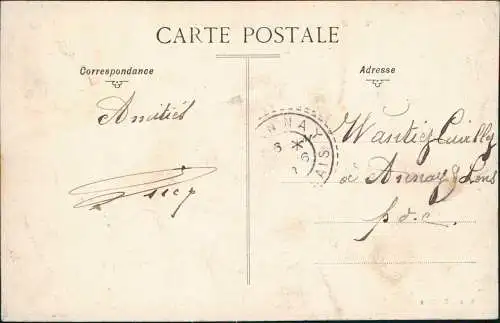 CARTE POSTALE
Correspondance
Adresse
Amitiés
NNAY
6
6
AIS
Wantiez
à Annay s/ Lens
p. d. c.